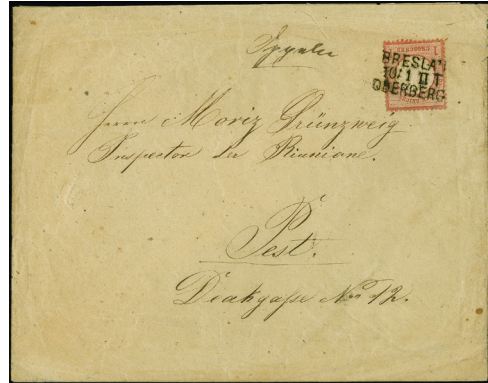 Oppeln
BRESLAU
10/1 II T
ODERBERG
Herrn Moriz Grünzweig
Inspector der Riunione.
Pest.
Deakgaſse No 12.